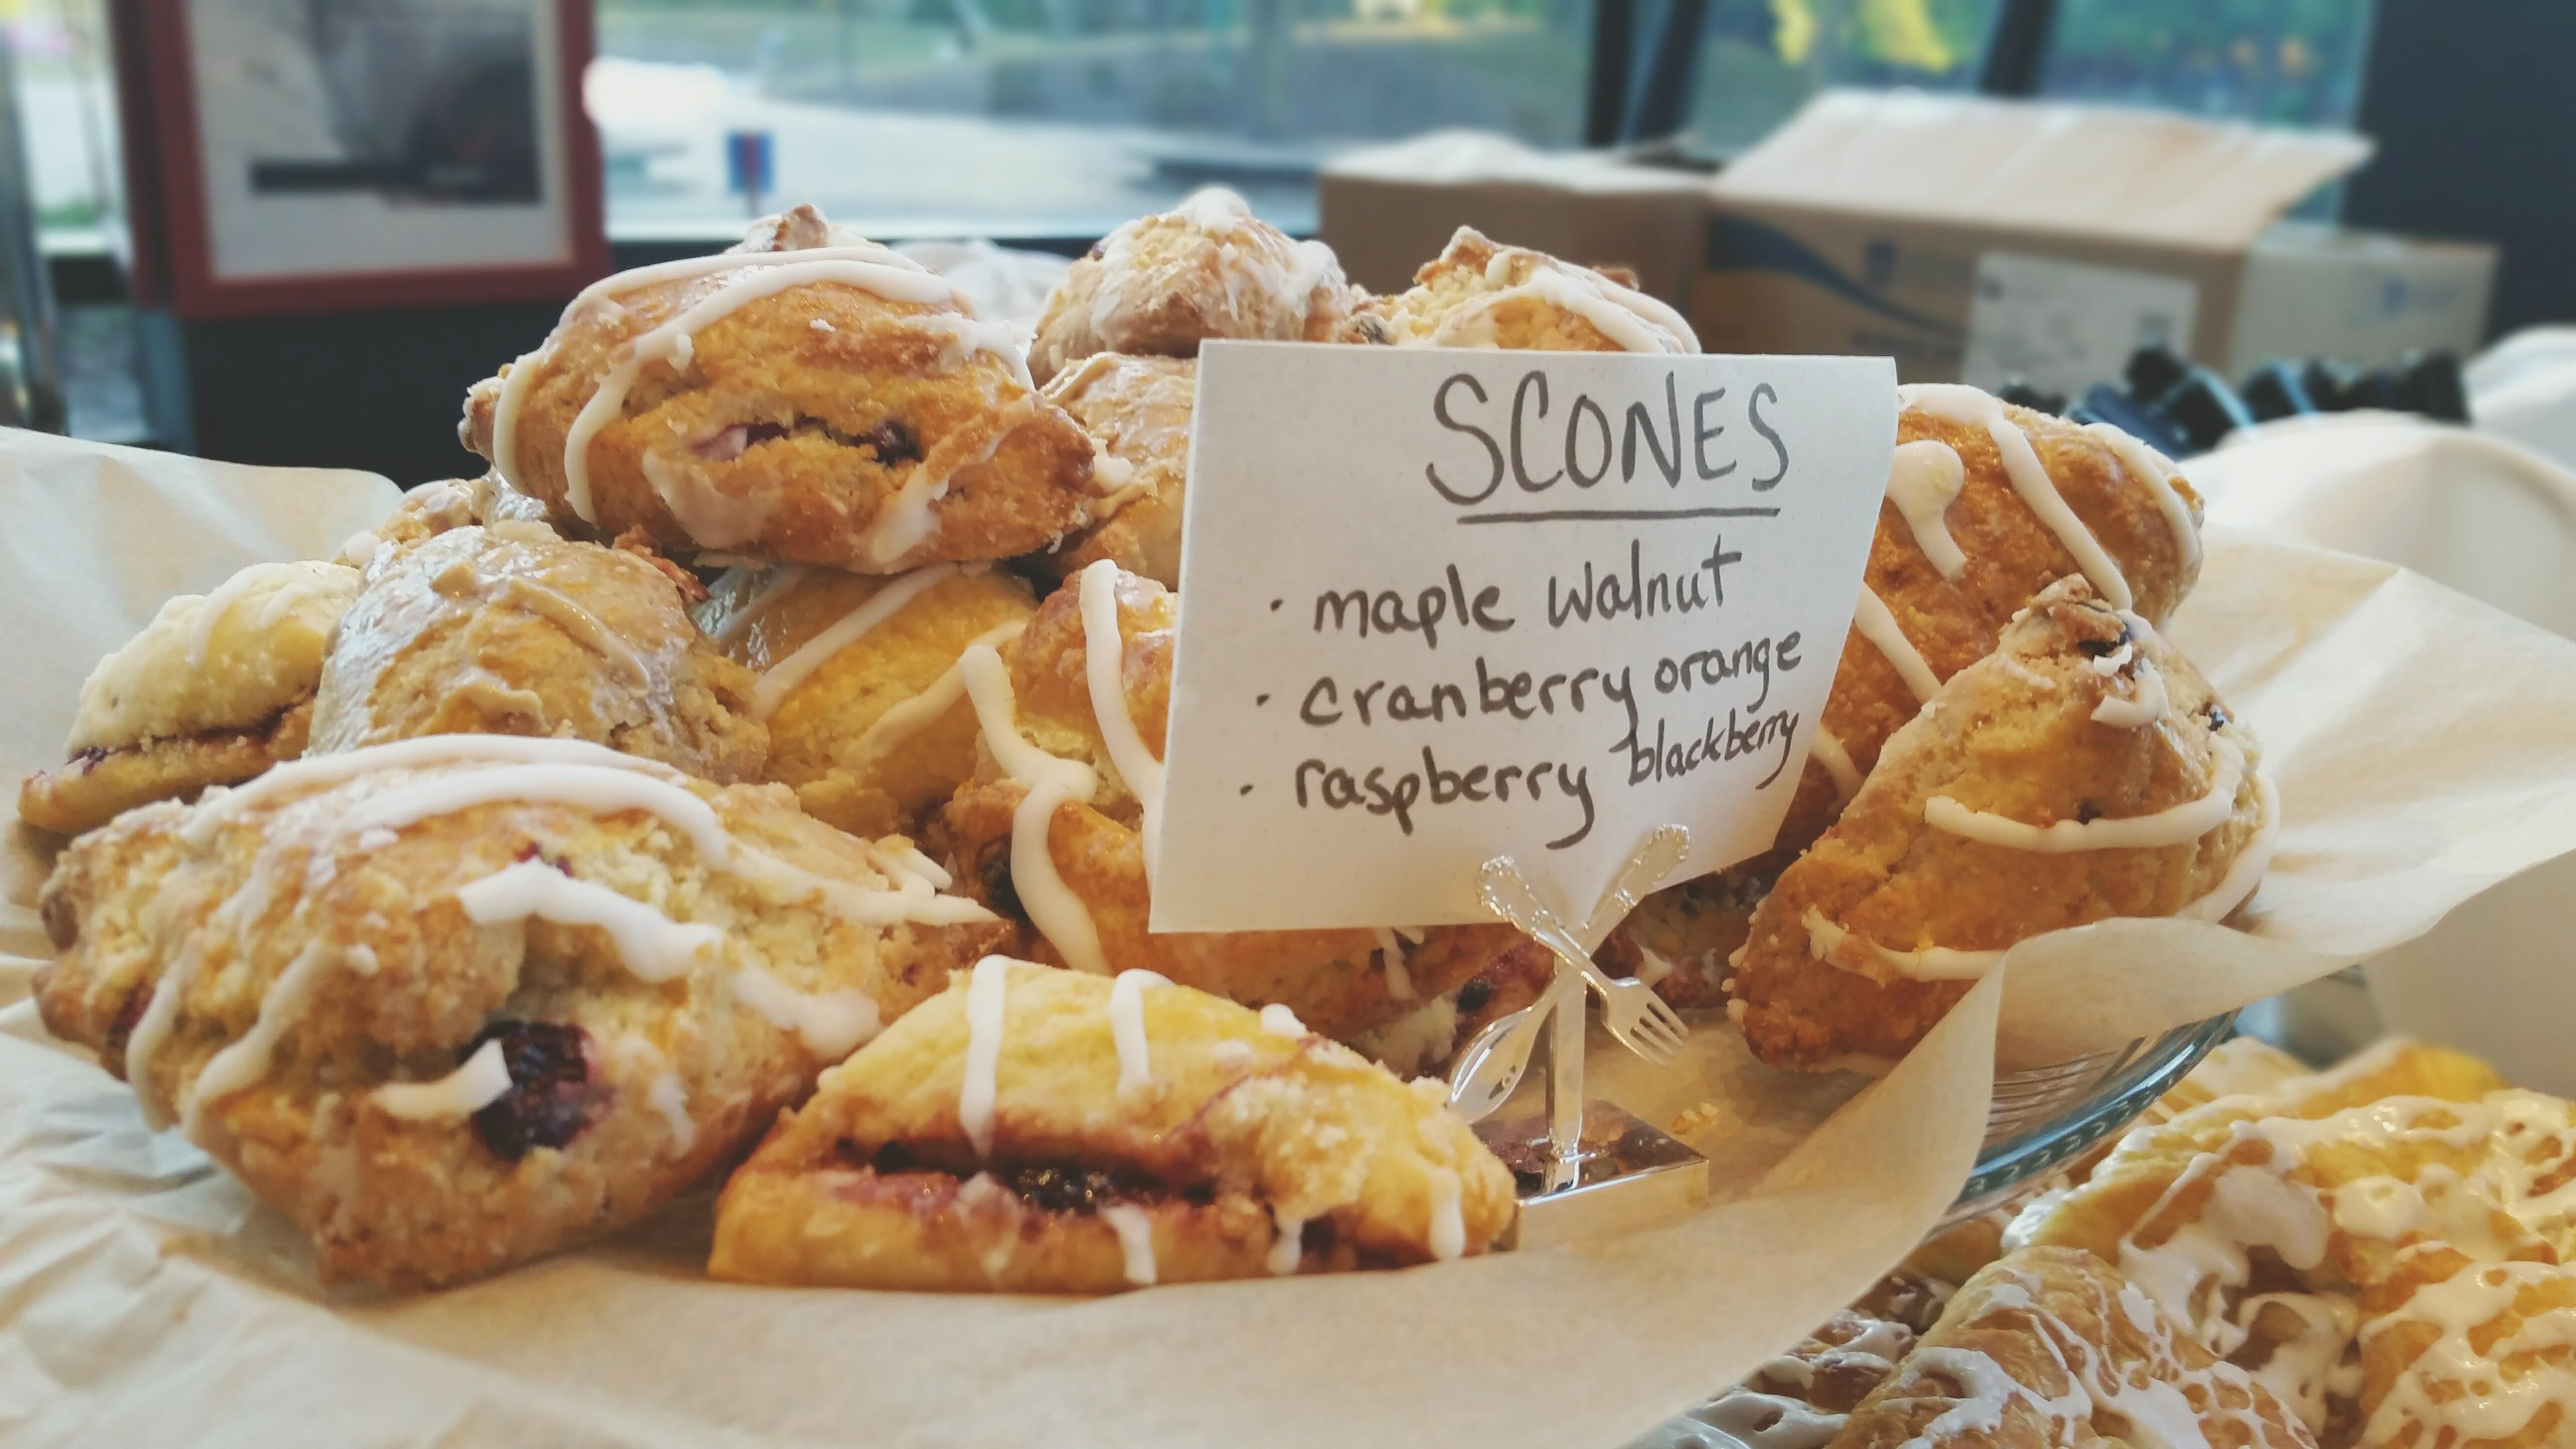 SCONES
· maple walnut
· cranberry orange
· raspberry blackberry